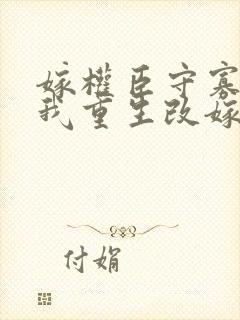 嫁权臣守寡
我重生改嫁
付娟